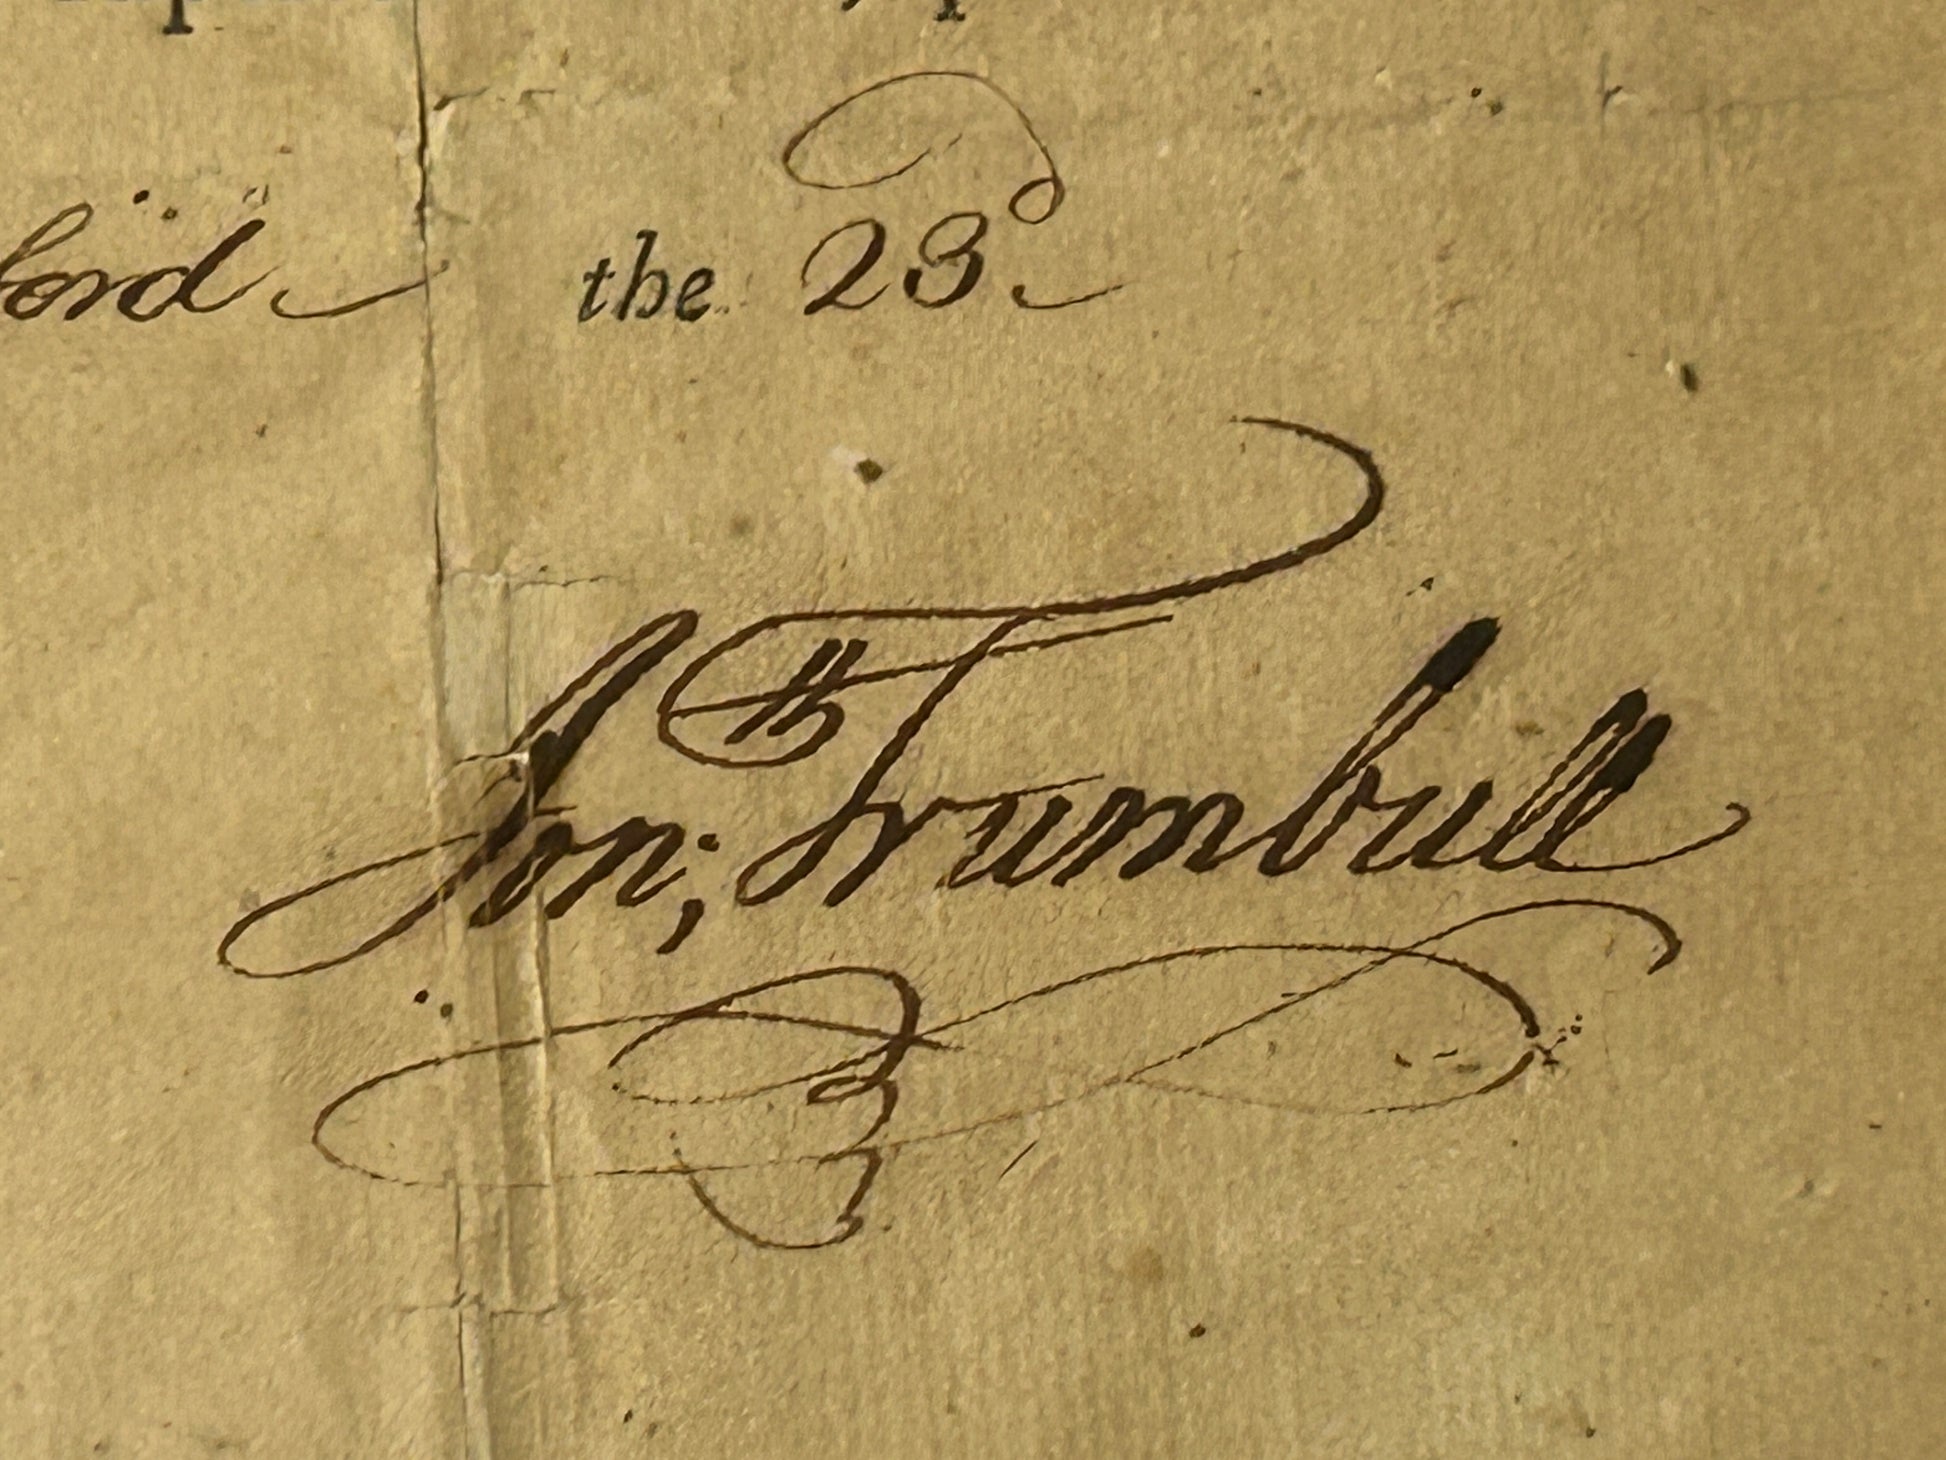 the 23d
Jon; Trumbull